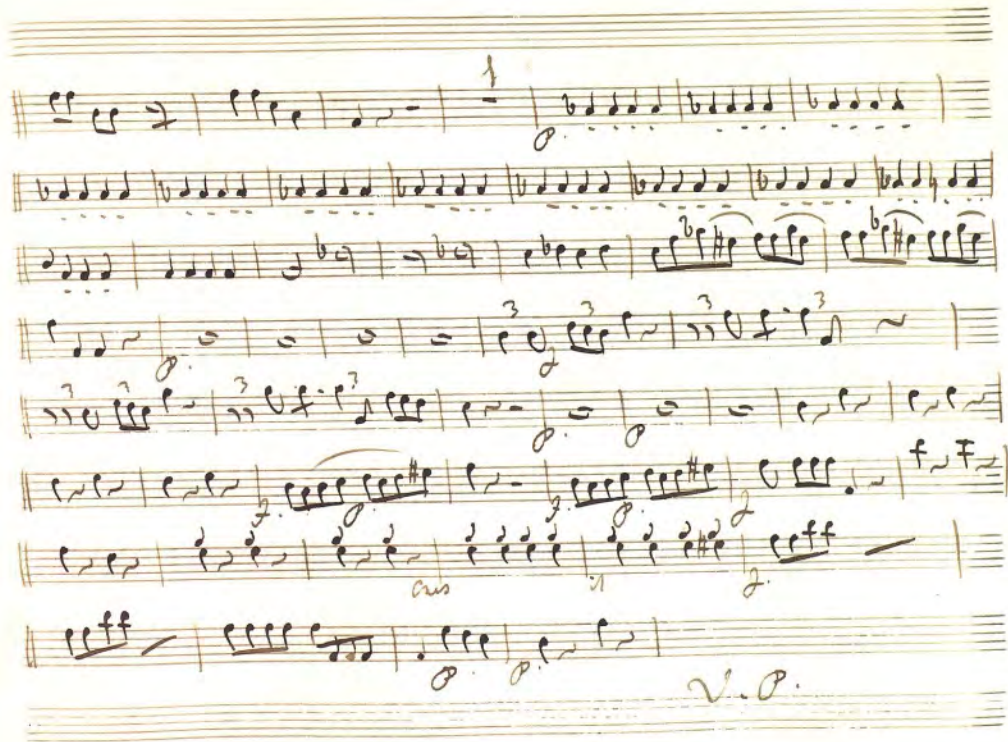 1
P.
3 3 3 3
P. f
3 3 3 3
P. P
f. P. f. P. f
cres il f.
P. P.
V. P.